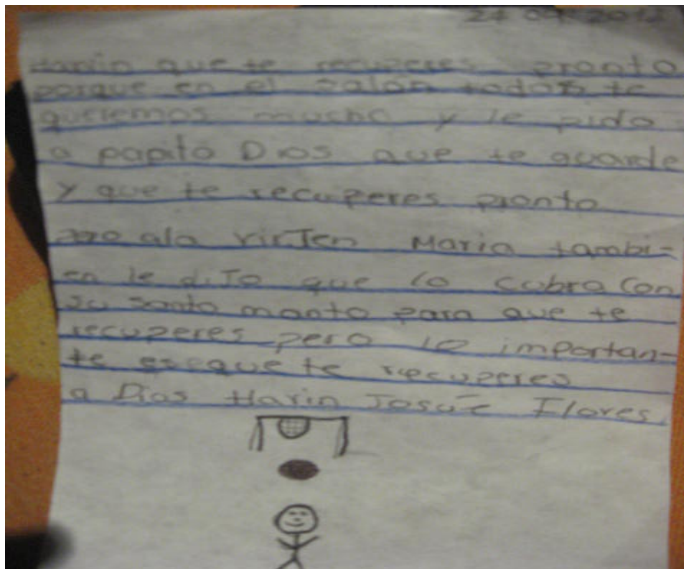 Harin que te recuperes pronto
porque en el salón todos te
queremos mucho y le pido
a papito Dios que te guarde
y que te recuperes pronto
ala virJen Maria tambi-
en le diJo que lo cubra con
su santo manto para que te
recuperes pero lo importan-
te es que te recuperes
a Dios Harin Josúe Flores